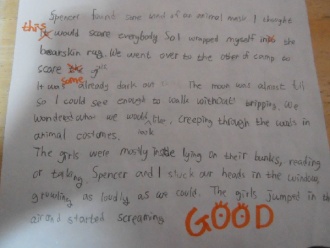 Spencer found some kind of an animal mask I thought
this would scare everybody So I wrapped myself in the
bearskin rug. We went over to the other of camp to
scare the girls
some
It was already dark out. The moon was almost full
so I could see enough to walk without tripping. We
wondered what we would look like. Creeping through the woods in
animal costumes.
The girls were mostly inside lying on their bunks, reading
or talking Spencer and I stuck our heads in the windows
growling as loudly as we could. The girls jumped in the
air and started screaming.
GOOD